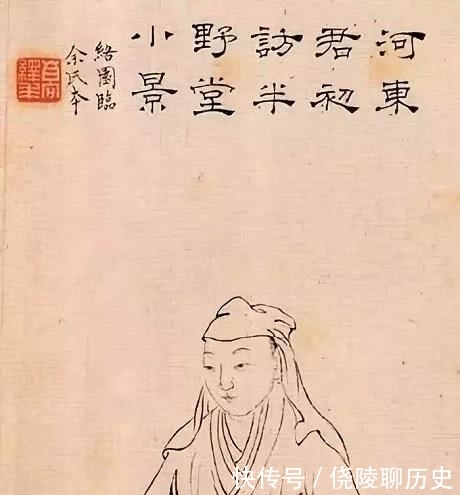 河東
君初
訪半
野堂
小景
絡園臨
余氏本
快传号／饶陵聊历史